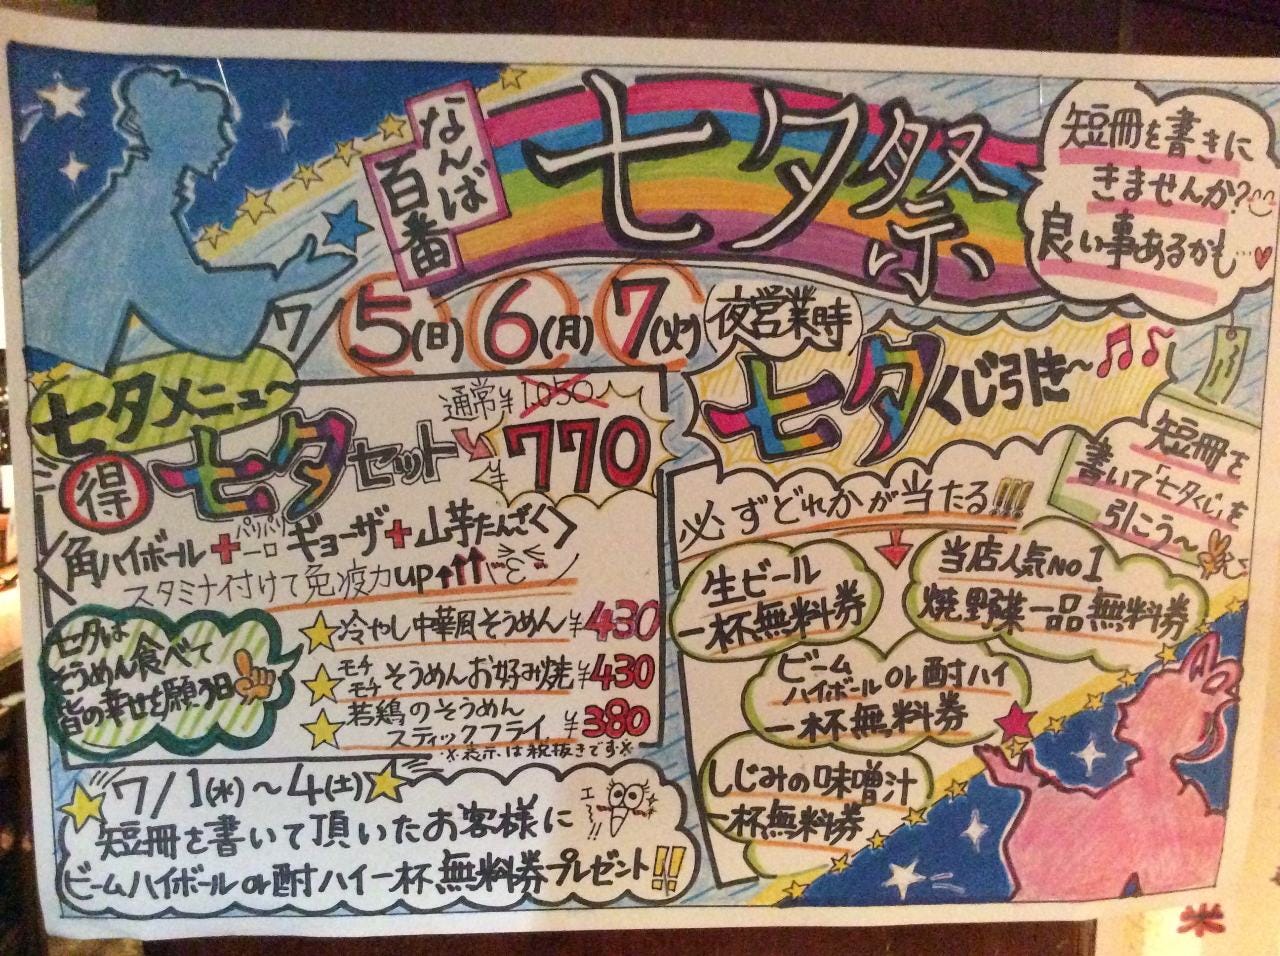 なんば
百番
七夕祭
短冊を書きに
きませんか?
良い事あるかも…
7/5(日)6(月)7(火)夜営業時
七夕メニュー
得 七夕セット 通常¥1,050
¥770
角ハイボール+パリパリ一口ギョーザ+山芋たんざく
スタミナ付けて免疫力up
七夕は
そうめん食べて
皆の幸せを願う日
冷やし中華風そうめん¥430
モチモチそうめんお好み焼¥430
若鶏のそうめん
スティックフライ ¥380
※表示は税抜きです※
7/1(水)~4(土)
短冊を書いて頂いたお客様に
ビームハイボールor酎ハイ一杯無料券プレゼント!!
七夕くじ引き~
短冊を
書いて「七夕くじ」を
引こう~
必ずどれかが当たる!!!!
生ビール
一杯無料券
当店人気No1
焼野菜一品無料券
ビーム
ハイボールor酎ハイ
一杯無料券
しじみの味噌汁
一杯無料券